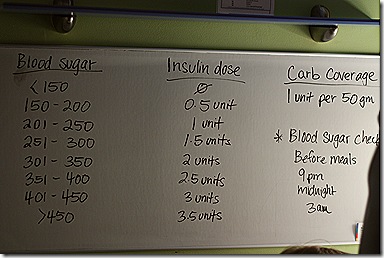 Blood sugar Insulin dose Carb Coverage
<150 ∅ 1 unit per 50 gm
150-200 0.5 unit
201-250 1 unit
251-300 1.5 units * Blood Sugar check
301-350 2 units Before meals
351-400 2.5 units 9pm
401-450 3 units midnight
>450 3.5 units 3am